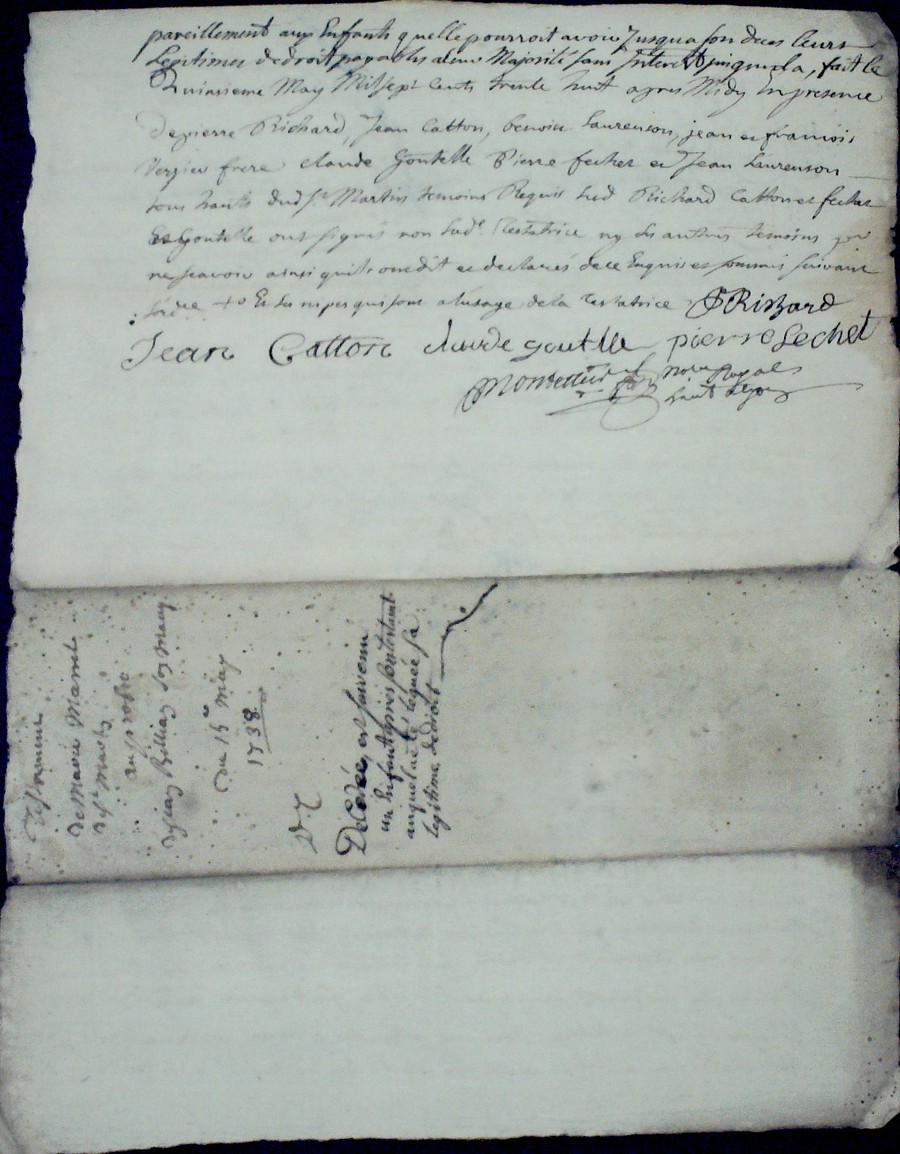 pareillement aux Enfants quelle pourroit avoir Jusqua son deces leurs
Legitimes dedroit payables aleur Majorité sans Interets jusques la, fait le
Quinzieme May Mil sept cents trente huit apres Midy En presence
De pierre Richard, Jean Catton, benoit Laurenson, jean et francois
Verzieu frere claude Goutelle Pierre fechet et Jean Laurenson
tous hants dud St Martin temoins Requis Led Richard Catton et fechet
Et Goutelle ont signés non Lade testatrice ny Les autres temoins pour
ne scavoir ainsi quils ont dit et declarés dece Enquis et sommés suivant
Lordce + Et Les nipes qui sont a lusage de la testatrice P Rishard
Jean Catton claude goutelle pierre fechet
notre Royal
Testament
de Marie
de St Martin
au profit
de jean Billiar son mary
du 15e may
1738
Decedée, et survenu
un Enfant apres son testament
auquel acte leguée sa
legitime dedroit